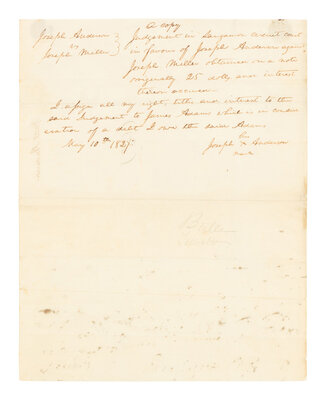 a copy
Joseph Anderson } Judgement in Sangamon circuit court
vs
Joseph Miller } in favour of Joseph Anderson against
Joseph Miller obtained on a note
originally 25 dolls and interest
thereon
I assign all my right, title and interest to the
said Judgement to James Adams which is in consid
eration of a debt I owe the said Adams
May 10th 1827
his
Joseph x Anderson
mark